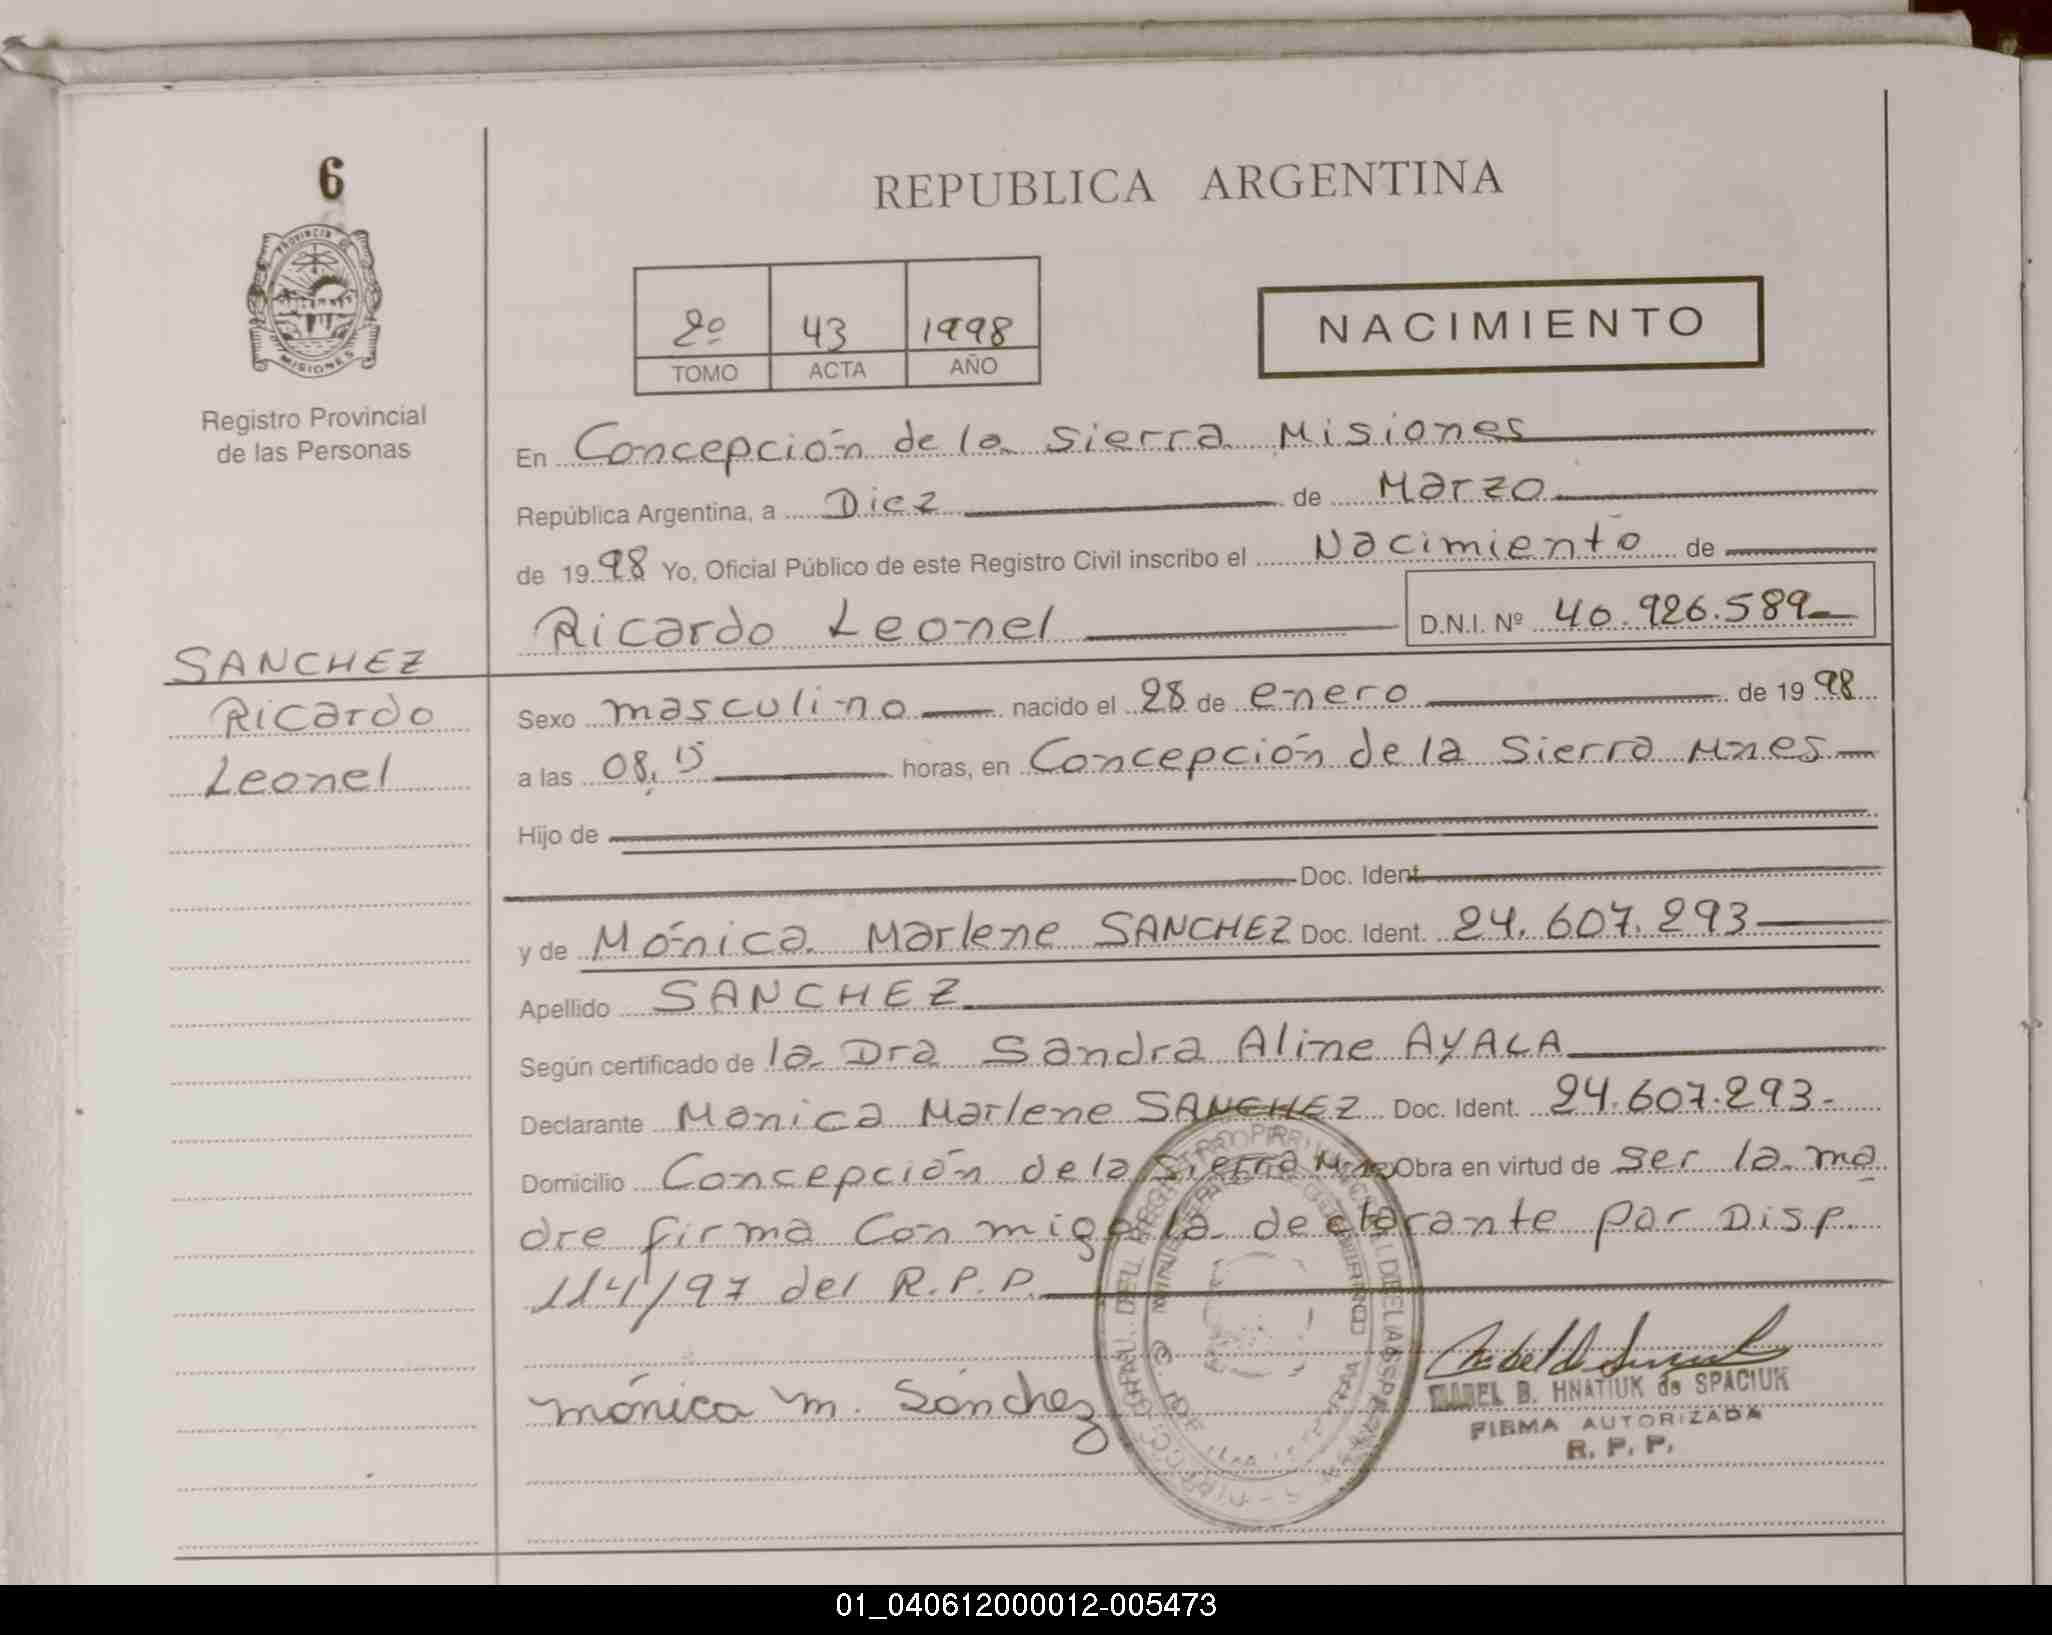 6
REPUBLICA ARGENTINA
PROVINCIA DE
MISIONES
2º 43 1998
TOMO ACTA AÑO
NACIMIENTO
Registro Provincial
de las Personas
En Concepción de la Sierra Misiones
República Argentina, a Diez de Marzo
de 1998 Yo, Oficial Público de este Registro Civil inscribo el Nacimiento de
Ricardo Leonel D.N.I. Nº 40.926.589
SANCHEZ
Ricardo
Leonel
Sexo masculino nacido el 28 de enero de 1998
a las 08,15 horas, en Concepción de la Sierra Mnes
Hijo de
Doc. Ident.
y de Mónica Marlene SANCHEZ Doc. Ident. 24.607.293
Apellido SANCHEZ
Según certificado de la Dra Sandra Aline AYALA
Declarante Monica Marlene SANCHEZ Doc. Ident. 24.607.293-
Domicilio Concepción de la Sierra Mnes Obra en virtud de ser la ma
dre firma Con migo la declarante por Disp.
114/97 del R.P.P.
mónica m. Sánchez
HNATIUK de SPACIUK
FIRMA AUTORIZADA
R. P. P.
01_040612000012-005473